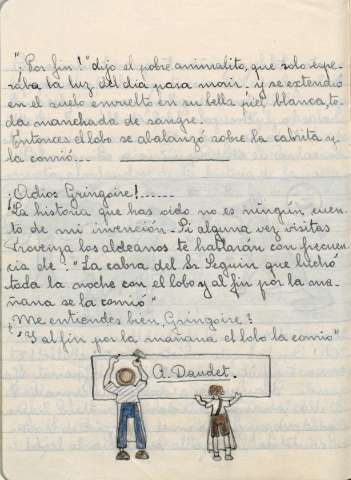 "¡Por fin!" dijo el pobre animalito, que solo espe-
raba la luz del dia para morir. y se extendió
en el suelo envuelto en su bella piel blanca, to-
da manchada de sangre.
Entonces el lobo se abalanzó sobre la cabrita y
la comió...
¡Adios Gringoire!......
La historia que has oido no es ningún cuen-
to de mi invención. Si alguna vez visitas
Provenza los aldeanos te hablarán con frecuen-
cia de: "La cabra del Sr Seguin que luchó
toda la noche con el lobo y al fin por la ma-
ñana se la comió"
¿Me entiendes bien, Gringoire?
"Y al fin por la mañana el lobo la comió"
A. Daudet.